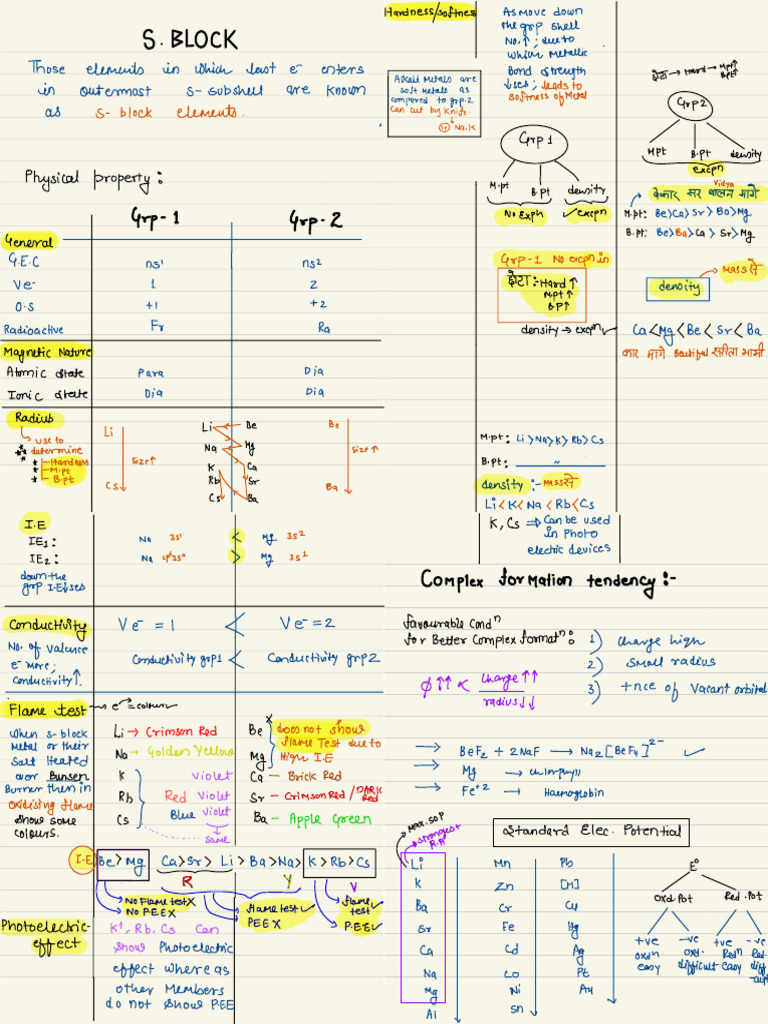 S. BLOCK
Those elements in which last e⁻ enters
in outermost s-subshell are known
as s-block elements.
Physical property:
Grp-1 Grp-2
General
G.E.C ns¹ ns²
Ve⁻ 1 2
O.S +1 +2
Radioactive Fr Ra
Magnetic Nature
Atomic state Para Dia
Ionic state Dia Dia
Radius
use to
determine
Hardness
M.pt
B.pt
Li
size↑
Cs
Li Be
Na Mg
K Ca
Rb Sr
Cs Ba
Be
size↑
Ba
I.E
IE₁: Na 3s¹ < Mg 3s²
IE₂: Na > Mg 3s¹
down the
grp I.E↓ses
Conductivity Ve⁻ = 1 < Ve⁻ = 2
No. of valence
e⁻ more; Conductivity grp1 < Conductivity grp2
Conductivity↑.
Flame test → e⁻ = colour
When s-block
Metal or their
salt heated
over Bunsen
Burner then in
oxidising flame
show some
colours.
Li → Crimson Red
Na → Golden Yellow
K Violet
Rb Red Violet
Cs Blue Violet
same
Be does not show
flame Test due to
Mg High I.E
Ca - Brick Red
Sr - Crimson Red/DARK Red
Ba - Apple Green
I.E Be > Mg Ca > Sr > Li > Ba > Na > K > Rb > Cs
R Y V
No Flame test X
No PEE X
flame test ✓
PEE X
flame test ✓
P.EE ✓
Photoelectric
effect
K⁺, Rb, Cs Can
show Photoelectric
effect where as
other Members
do not show PEE
Hardness/softness
As move down
the grp shell
No.↑; due to
which Metallic
Bond strength
↓ses; leads to
softness of Metal
Alkali Metals are
soft metals as
compared to grp.2
Can cut by knife.
Na, K
Grp 1
M.pt B.pt density
No Expn ✓ excpn
Grp-1 No excpn in
छोटा:- Hard↑
M.pt↑
B.P↑
density → excpn ✓
छोटा → Hard → M.pt↑
B.pt↑
Grp 2
M.pt B.Pt density
excpn
Vidya
बेकार सर बालन मांगे
M.pt: Be>Ca>Sr>Ba>Mg
B.pt: Be>Ba>Ca>Sr>Mg
density
Mass से
Ca<Mg<Be<Sr<Ba
कार मांगे Beautiful सरीता भाभी
M.pt: Li>Na>K>Rb>Cs
B.pt: "
density:- Mass से
Li<K<Na<Rb<Cs
K, Cs ⇒ Can be used
in Photo
electric devices
Complex formation tendency:-
favourable Condⁿ
for Better Complex formatⁿ: 1) charge high
2) small radius
3) +nce of vacant orbital
ϕ↑↑ ∝ charge↑↑
radius↓↓
→ BeF₂ + 2NaF → Na₂[BeF₄]²⁻ ✓
→ Mg → Chlorphyll
→ Fe⁺² → Haemoglobin
Standard Elec. Potential
Max. SOP
strongest
R.A
Li Mn Pb
K Zn [H]
Ba Cr Cu
Sr Fe Hg
Ca Cd Ag
Na Co Pt
Mg Ni Au
Al Sn
E°
Oxd. Pot Red. Pot
+ve -ve +ve -ve
oxdⁿ oxd. Redⁿ Red.
easy difficult easy